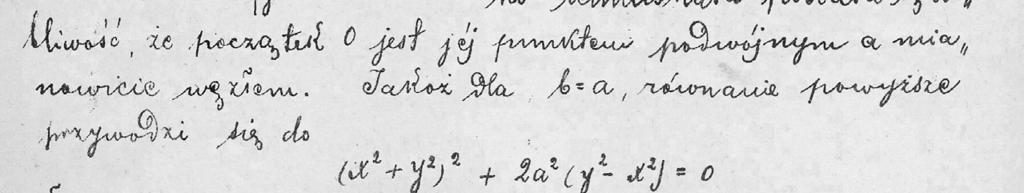 bliwość, że początek O jest jéj punktem podwójnym a mia„
nowicie węzłem. Jakoż dla b=a, równanie powyższe
przywodzi się do
(x² + y²)² + 2a² (y² - x²) = 0